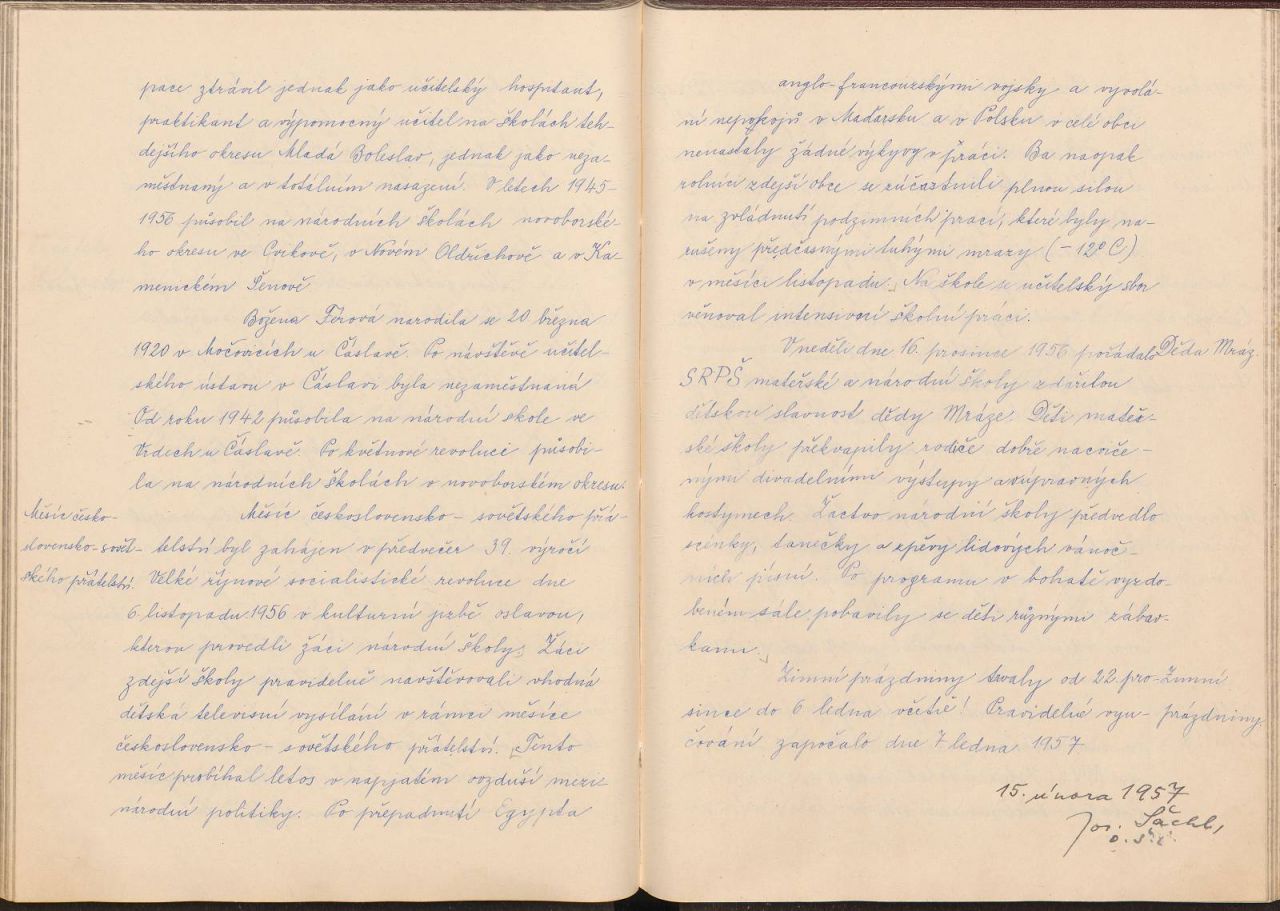 pace ztrávil jednak jako učitelský hospitant,
praktikant a výpomocný učitel na školách teh-
dejšího okresu Mladá Boleslav, jednak jako neza-
městnaný a v totálním nasazení. V letech 1945-
1956 působil na národních školách novoborské-
ho okresu ve Cvikově, v Novém Oldřichově a v Ka-
menickém Šenově
Božena Férova narodila se 20 března
1920 v Močovicích u Čáslavě. Po návštěvě učitel-
ského ústavu v Čáslavi byla nezaměstnaná
Od roku 1942 působila na národní škole ve
Vrdech u Čáslavě. Po květnové revoluci působi-
la na národních školách v novoborském okresu.
Měsíc česko-
slovensko-sovět-
ského přátelství.
Měsíc československo - sovětského přá-
telství byl zahájen v předvečer 39. výročí
Velké říjnové socialistické revoluce dne
6. listopadu 1956 v kulturní jizbě oslavou,
kterou provedli žáci národní školy. Žáci
zdejší školy pravidelně navštěvovali vhodná
dětská televisní vysílání v rámci měsíce
československo - sovětského přátelství. Tento
měsíc probíhal letos v napjatém ovzduší mezi-
národní politiky. Po přepadnutí Egypta
anglo-francouzskými vojsky a vyvolá-
ní nepokojů v Maďarsku a v Polsku v celé obci
nenastaly žádné výkyvy v práci. Ba naopak
rolníci zdejší obce se zúčastnili plnou silou
na zvládnutí podzimních prací, které byly na-
rušeny předčasnými tuhými mrazy (-12° C)
v měsíci listopadu. Na škole se učitelský sbor
věnoval intensivní školní práci.
V neděli dne 16. prosince 1956 pořádalo
Děda Mráz.
SRPŠ mateřské a národní školy zdařilou
dětskou slavnost dědy Mráze. Děti mateř-
ské školy překvapily rodiče dobře nacviče-
nými divadelními výstupy a v úpravných
kostymech. Žactvo národní školy předvedlo
scénky, tanečky a zpěvy lidových vánoč-
ních písní. Po programu v bohatě vyzdo-
beném sále pobavily se děti různými zábav-
kami.
Zimní prázdniny trvaly od 22. pro-
Zimní
prázdniny
since do 6 ledna včetně! Pravidelné vyu-
čování započalo dne 7 ledna 1957
15. února 1957
Jos. Šáchl,
o. š. i.